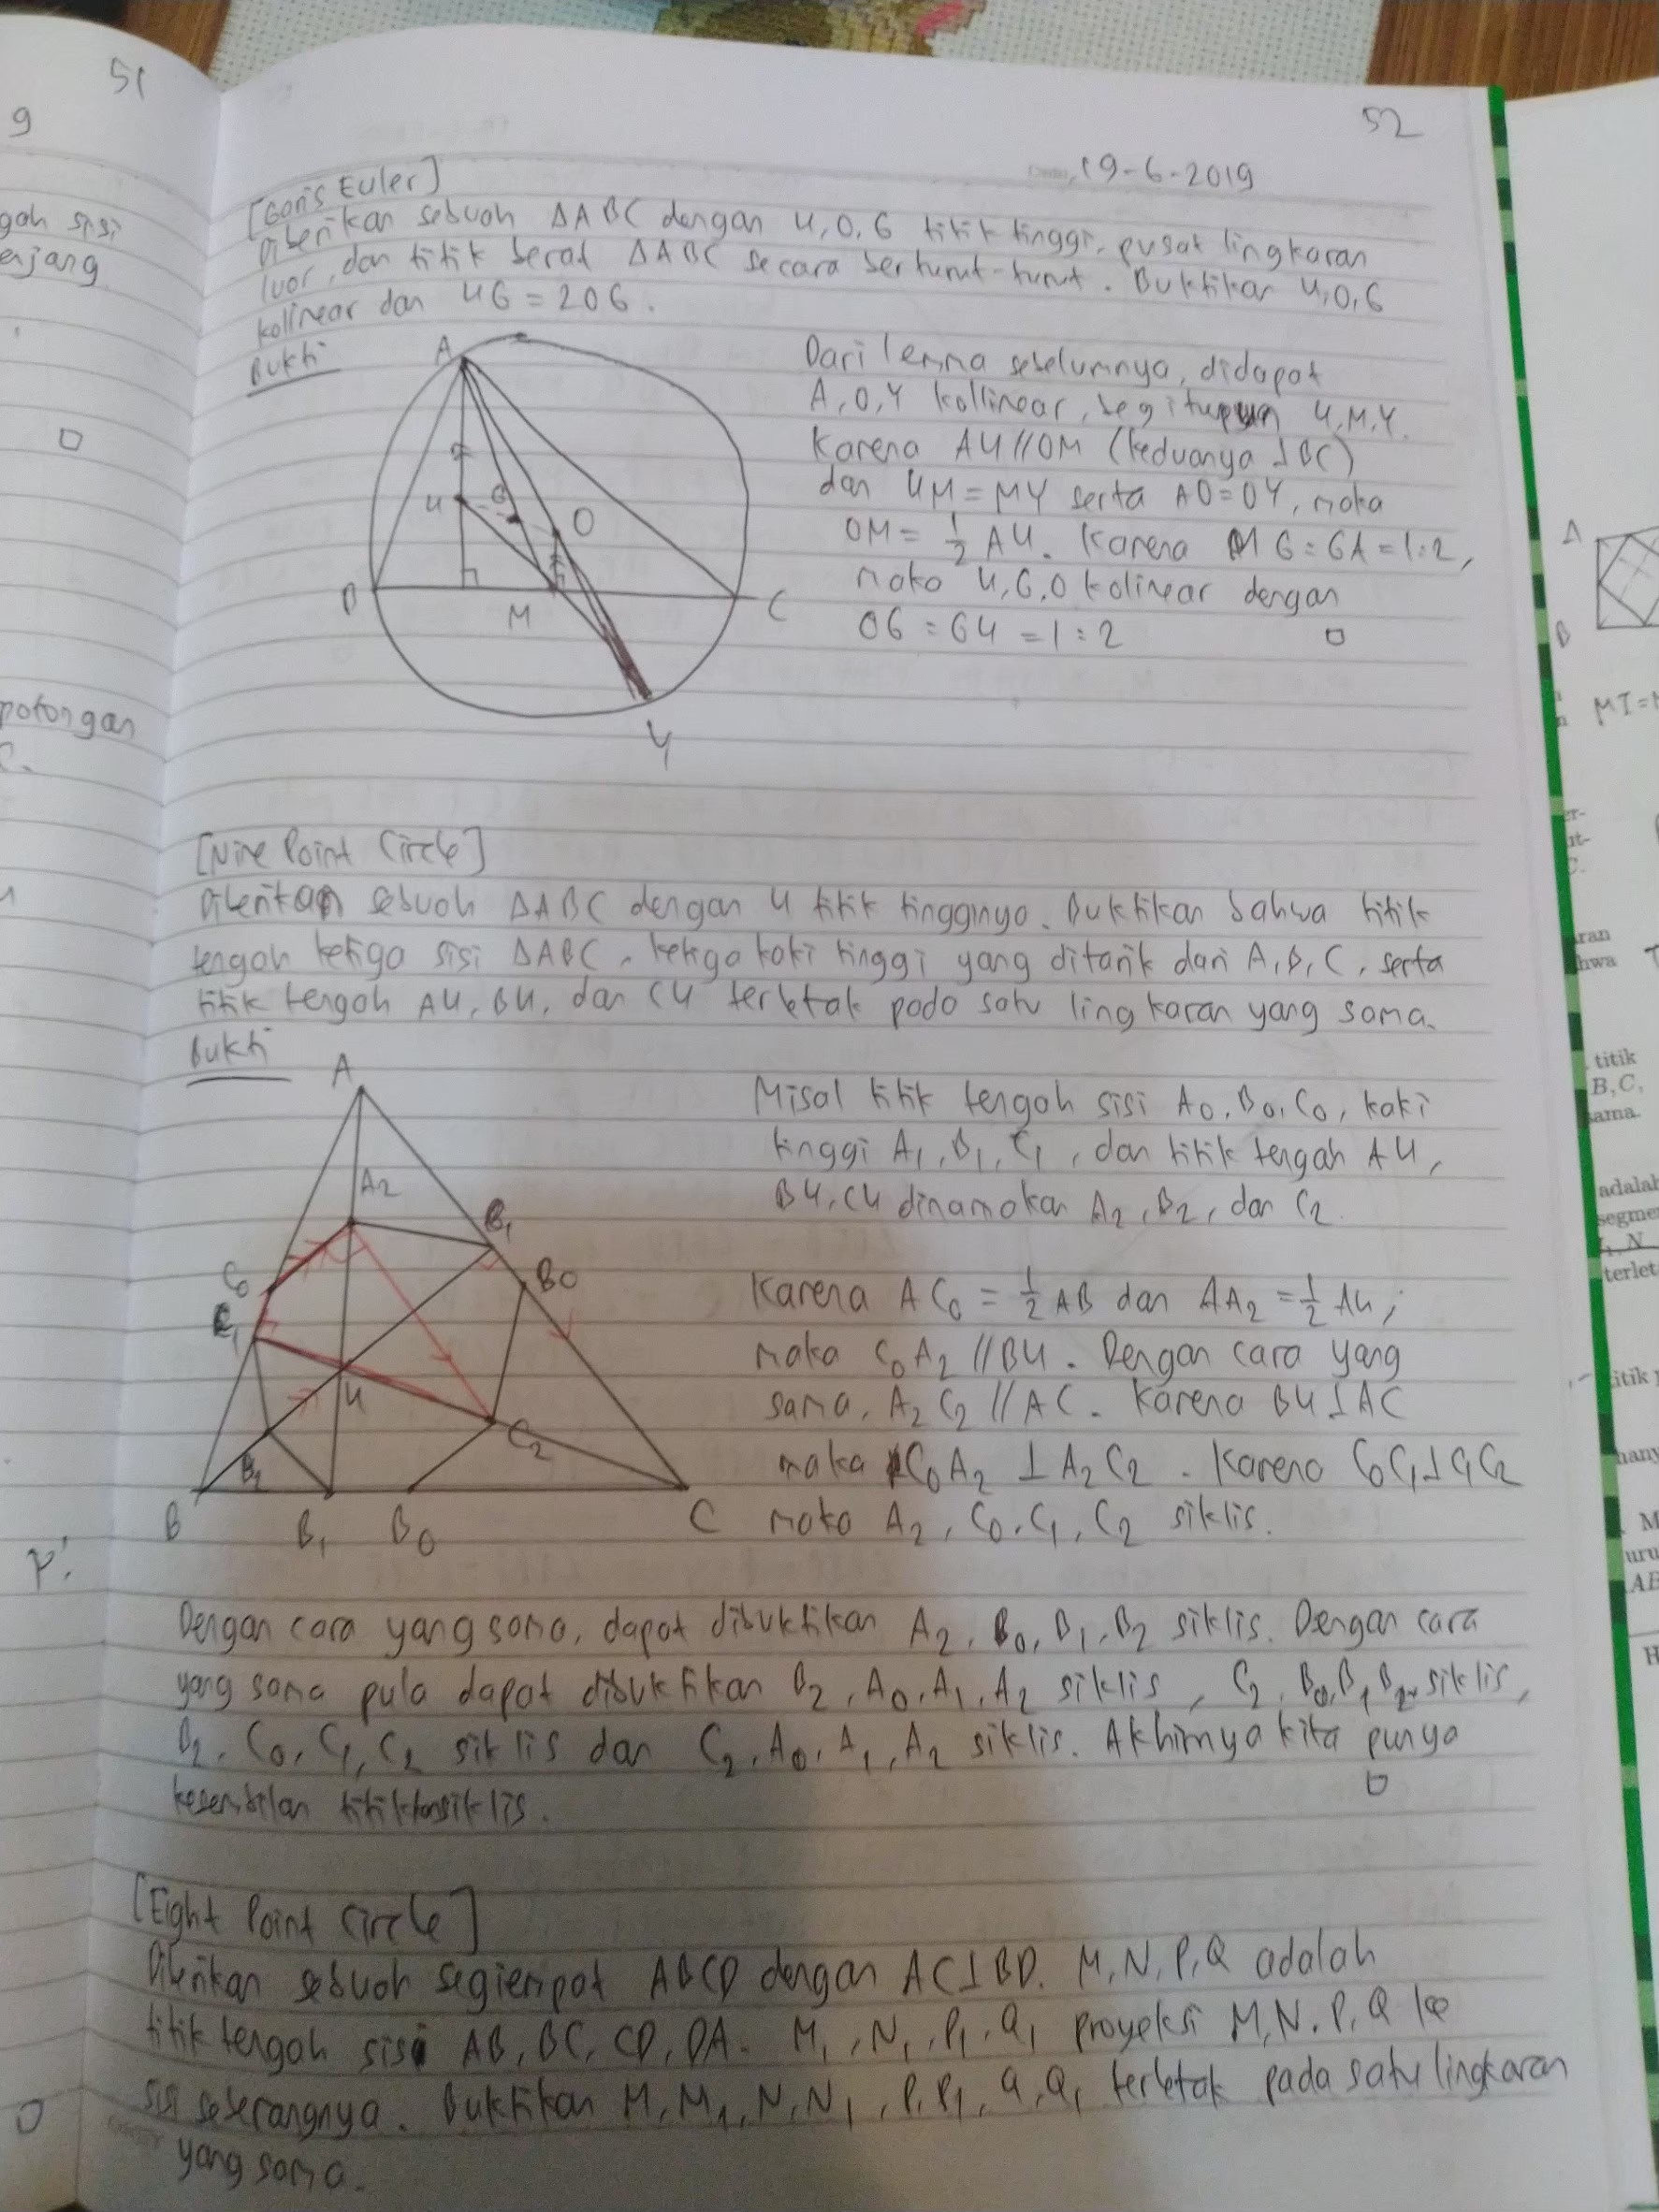 51
52
9
19-6-2019
[Garis Euler]
Diberikan sebuah ΔABC dengan H, O, G titik tinggi, pusat lingkaran
luar, dan titik berat ΔABC secara berturut-turut. Buktikan H, O, G
kolinear dan HG = 2OG.
Bukti
gah sisi
enjang
potongan
C.
A
H
G
O
B
M
C
Y
Dari lemma sebelumnya, didapat
A, O, Y kollinear, begitupun H, M, Y.
Karena AH // OM (keduanya ⊥ BC)
dan HM = MY serta AO = OY, maka
OM = 1/2 AH. Karena MG : GA = 1:2,
maka H, G, O kolinear dengan
OG : GH = 1 : 2 □
[Nine Point Circle]
Diberikan sebuah ΔABC dengan H titik tingginya. Buktikan bahwa titik
tengah ketiga sisi ΔABC, ketiga kaki tinggi yang ditarik dari A, B, C, serta
titik tengah AH, BH, dan CH terletak pada satu lingkaran yang sama.
Bukti
A
A2
B1
C0
B0
C1
H
C2
B2
B
B1
B0
C
Misal titik tengah sisi A0, B0, C0, kaki
tinggi A1, B1, C1, dan titik tengah AH,
BH, CH dinamakan A2, B2, dan C2.
Karena AC0 = 1/2 AB dan AA2 = 1/2 AH,
maka C0A2 // BH. Dengan cara yang
sama, A2C2 // AC. Karena BH ⊥ AC
maka C0A2 ⊥ A2C2. Karena C0C1 ⊥ C1C2
maka A2, C0, C1, C2 siklis.
P'.
Dengan cara yang sama, dapat dibuktikan A2, B0, B1, B2 siklis. Dengan cara
yang sama pula dapat dibuktikan B2, A0, A1, A2 siklis, C2, B0, B1, B2 siklis,
B2, C0, C1, C2 siklis dan C2, A0, A1, A2 siklis. Akhirnya kita punya
kesembilan titik konsiklis. □
[Eight Point Circle]
Diberikan sebuah segiempat ABCD dengan AC ⊥ BD. M, N, P, Q adalah
titik tengah sisi AB, BC, CD, DA. M1, N1, P1, Q1 proyeksi M, N, P, Q ke
sisi seberangnya. Buktikan M, M1, N, N1, P, P1, Q, Q1 terletak pada satu lingkaran
yang sama.
A
B
titik
B, C,
ama.
adalah
segmen
terlet
itik